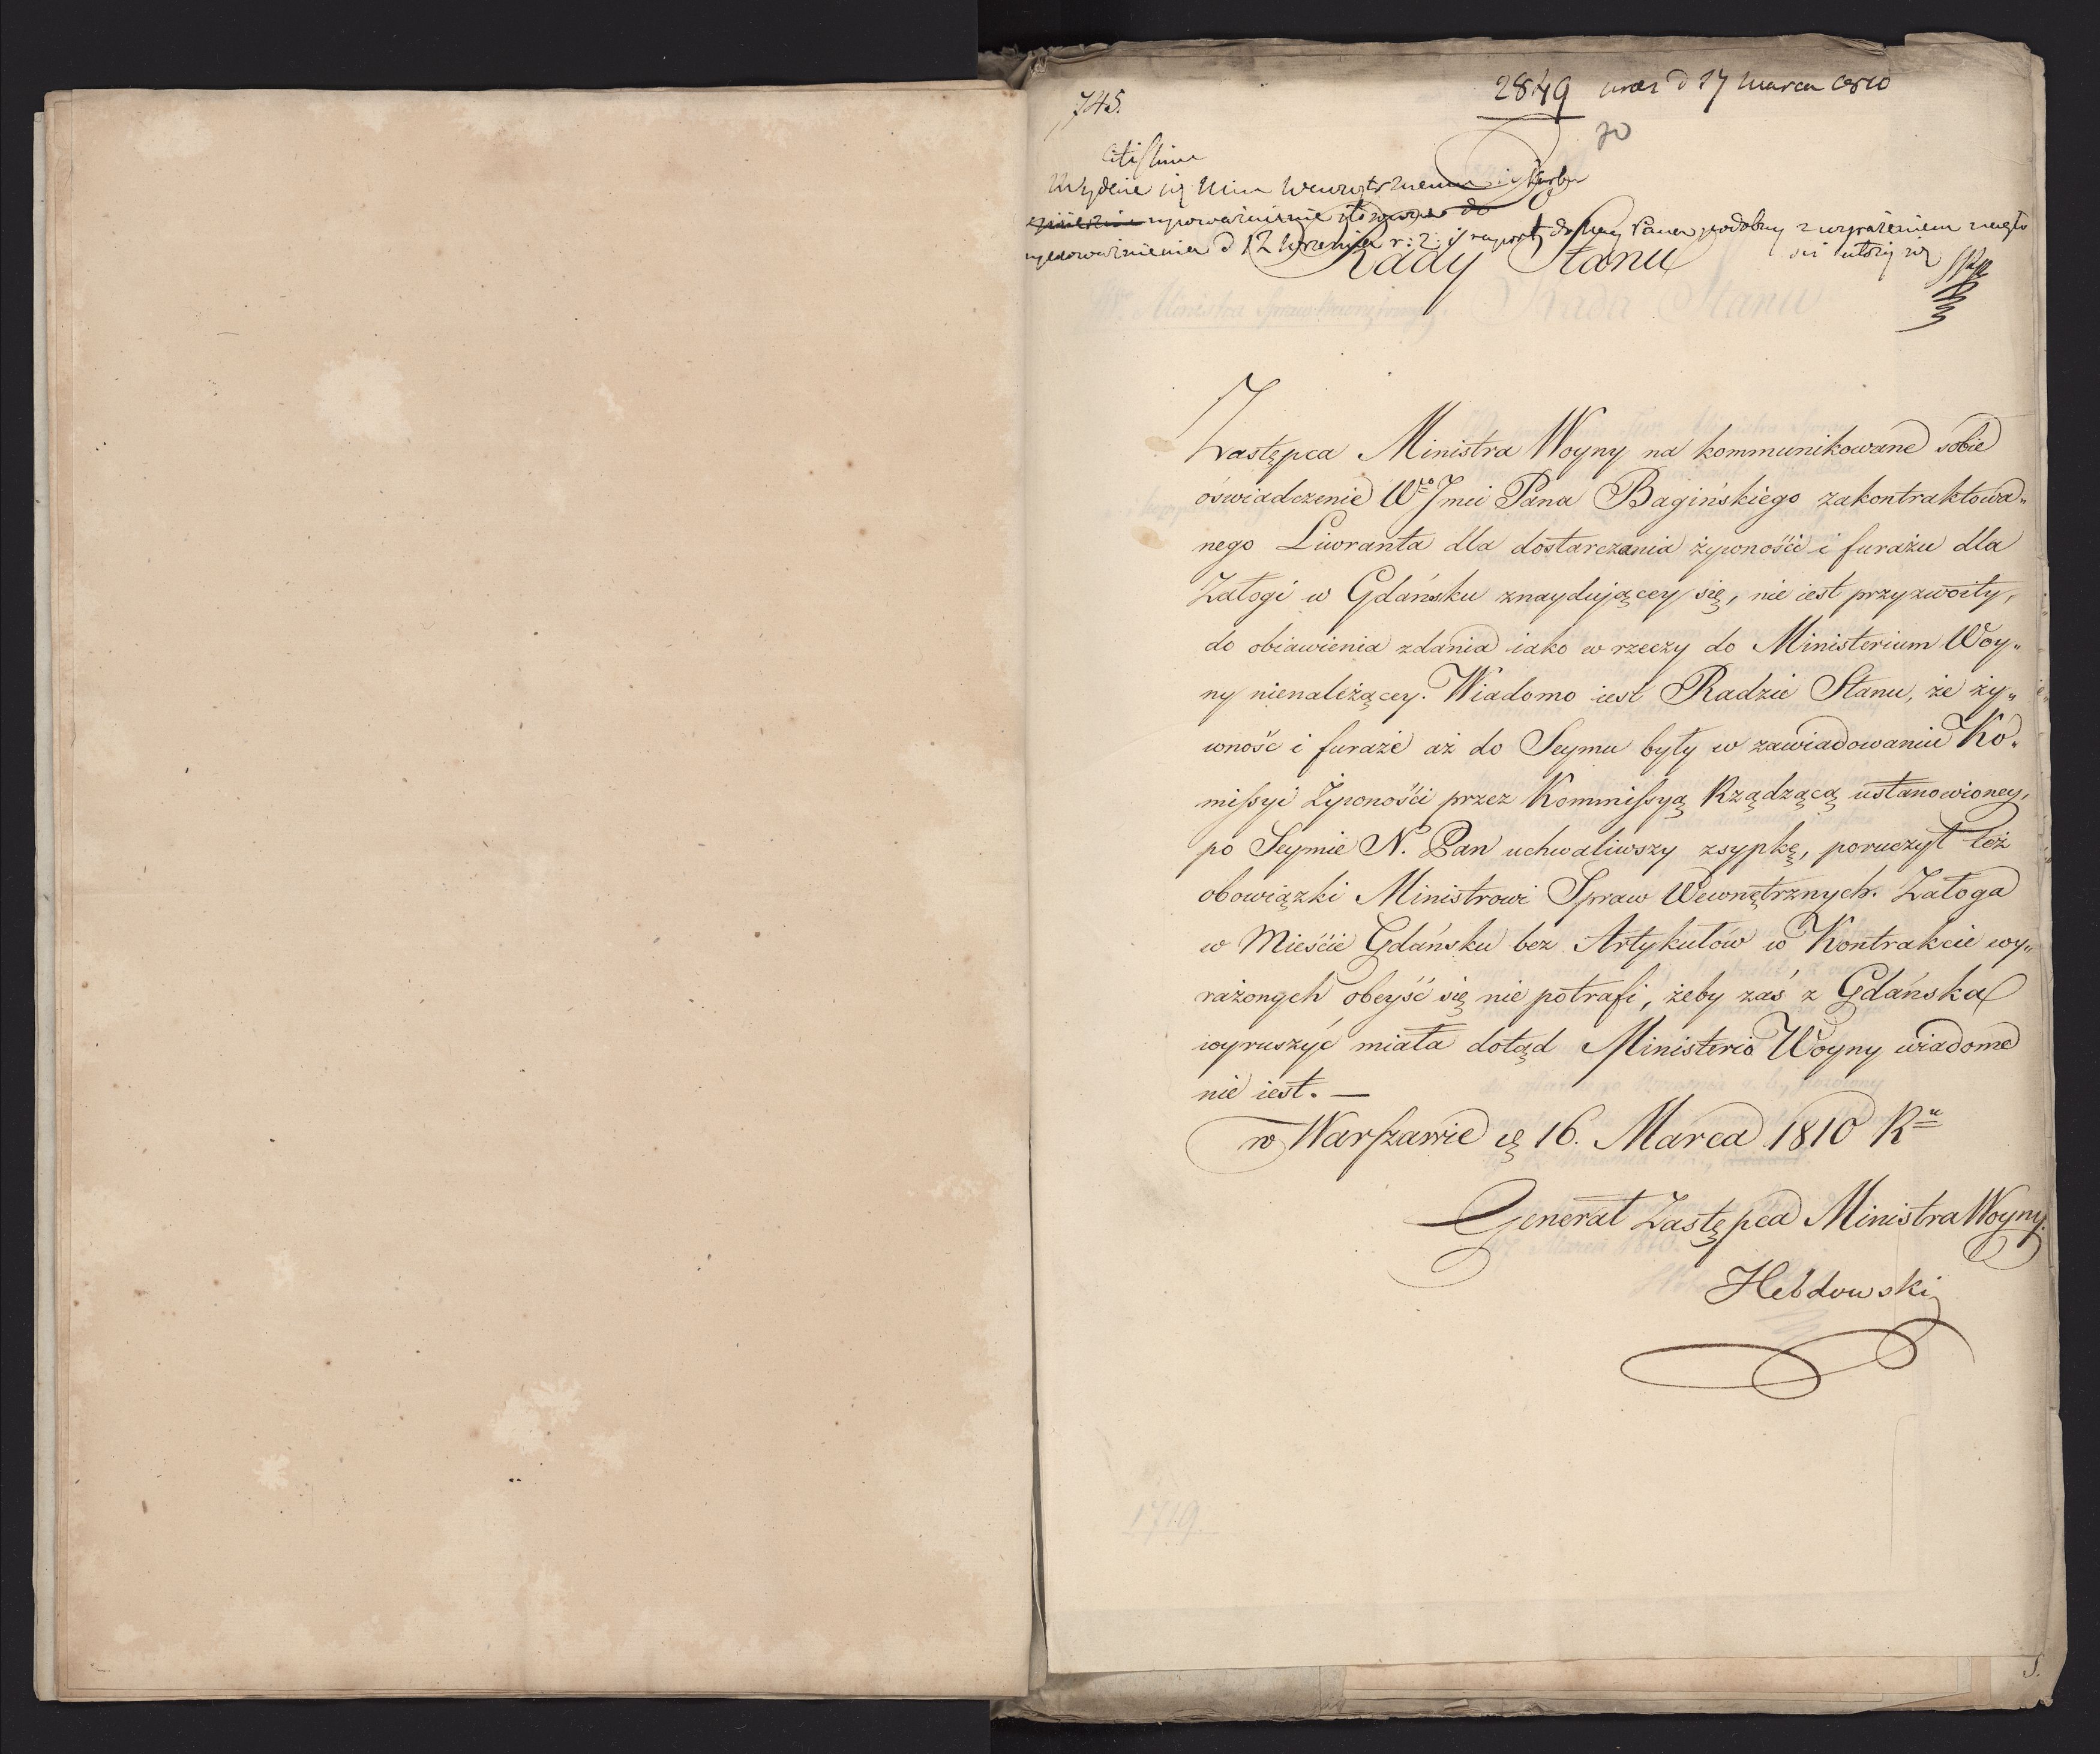 745.
2849 17 marca 1810
70
citissime
Wewnętrznemu i Skarbu
upoważnienie stosowne do
upoważnienia d 12 Września r: z: i raport do Nay Pana podobny z wyrażeniem nagło
ści ułoży się
Rady Stanu
Zastępca Ministra Woyny na kommunikowane sobie
oświadczenie Wgo Jmci Pana Bagińskiego zakontraktowa„
nego Liwranta dla dostarczania żywności i furażu dla
Załogi w Gdańsku znaydującey się, nie iest przyzwoity,
do obiawienia zdania iako w rzeczy do Ministerium Woy„
ny nienależącey. Wiadomo iest Radzie Stanu, że ży„
wność i furaże aż do Seymu były w zawiadowaniu Ko„
missyi Żywności przez Kommissyą Rządzącą ustanowioney,
po Seymie N. Pan uchwaliwszy zsypkę, poruczył też
obowiązki Ministrowi Spraw Wewnętrznych. Załoga
w Mieście Gdańsku bez Artykułów w Kontrakcie wy„
rażonych obeyść się nie potrafi, żeby zaś z Gdańska
wyruszyć miała dotąd Ministerio Woyny wiadome
nie iest. —
w Warszawie d 16. Marca 1810 Ru
Generał Zastępca Ministra Woyny.
Hebdowski